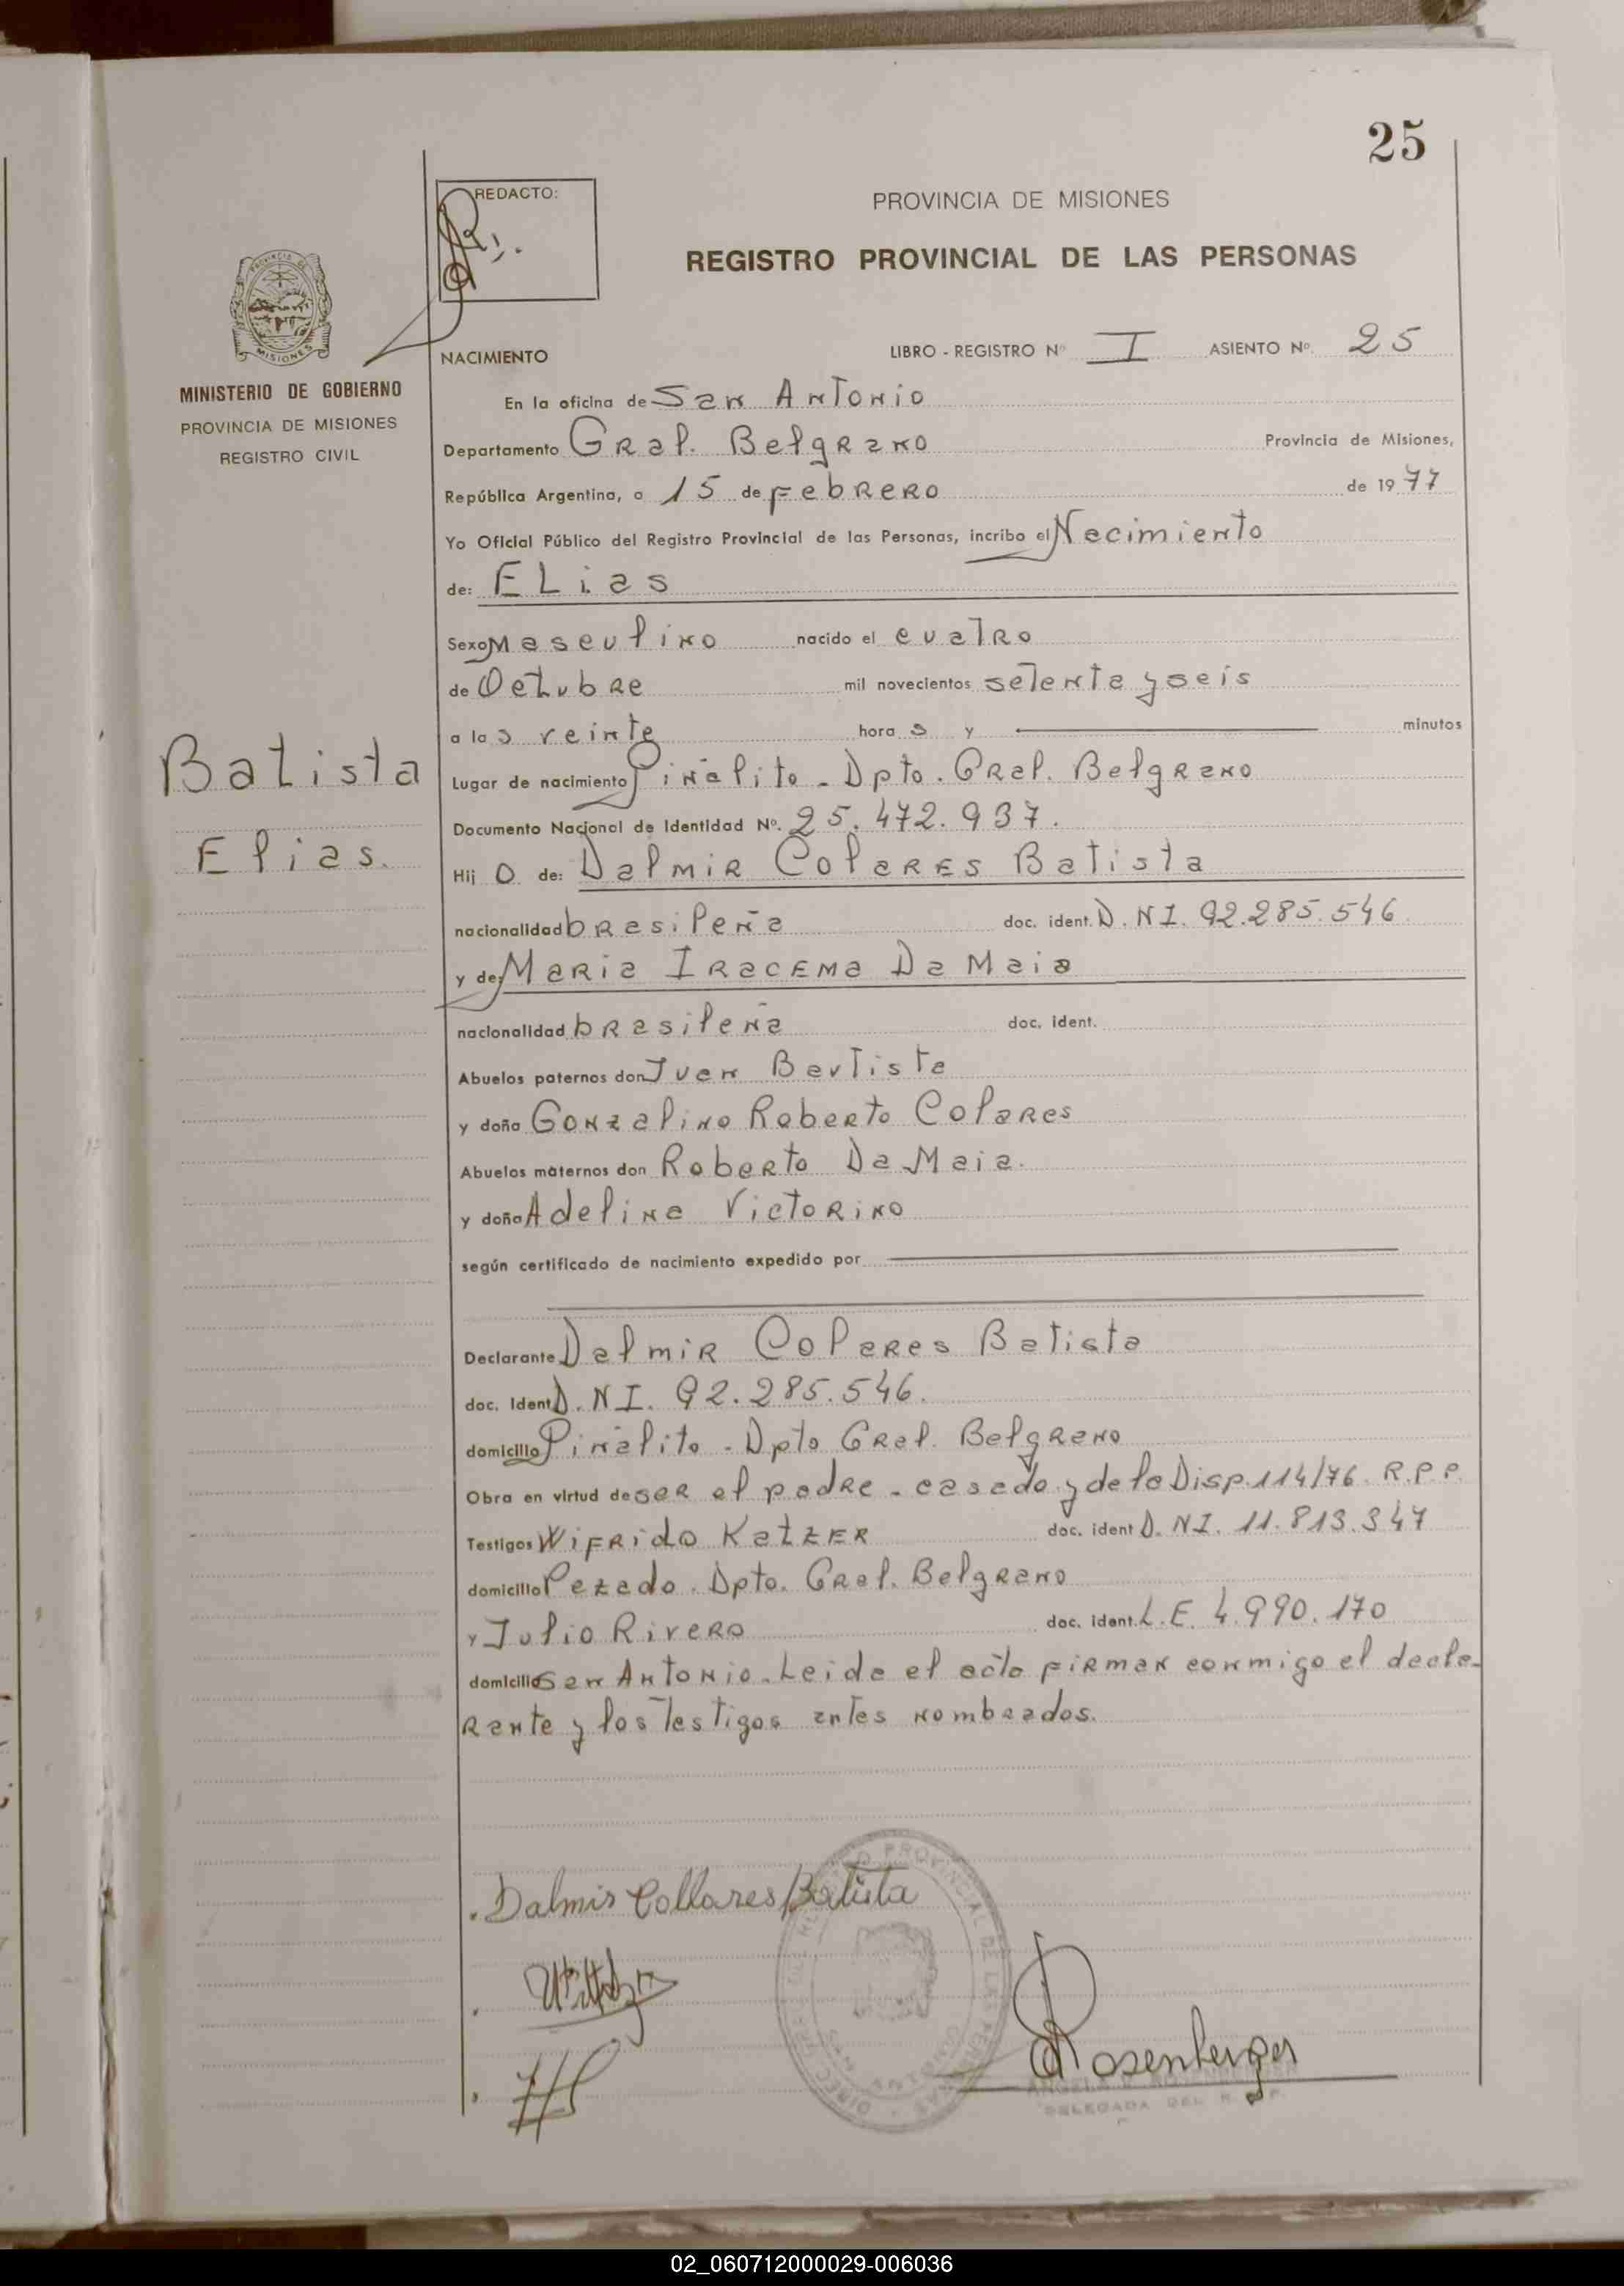 25
REDACTO:
PROVINCIA DE MISIONES
REGISTRO PROVINCIAL DE LAS PERSONAS
PROVINCIA DE
MISIONES
MINISTERIO DE GOBIERNO
PROVINCIA DE MISIONES
REGISTRO CIVIL
NACIMIENTO LIBRO - REGISTRO Nº I ASIENTO Nº 25
En la oficina de San Antonio
Departamento Gral. Belgrano Provincia de Misiones,
República Argentina, a 15 de Febrero de 1977
Yo Oficial Público del Registro Provincial de las Personas, incribo el Nacimiento
de: ELias
Sexo Masculino nacido el cuatro
de Octubre mil novecientos setenta y seis
a las veinte horas y minutos
Batista
Elias.
Lugar de nacimiento Piñalito - Dpto. Gral. Belgrano
Documento Nacional de Identidad Nº. 25.472.937.
Hijo de: Dalmir Colares Batista
nacionalidad brasileña doc. ident. D.NI. 92.285.546
y de: Maria Iracema Da Maia
nacionalidad brasileña doc. ident.
Abuelos paternos don Juan Bautista
y doña Gonzalino Roberto Colares
Abuelos maternos don Roberto Da Maia.
y doña Adelina Victorino
según certificado de nacimiento expedido por
Declarante Dalmir Colares Batista
doc. Ident D.NI. 92.285.546.
domicilio Piñalito - Dpto Gral. Belgrano
Obra en virtud de ser el padre - casado y de la Disp. 114/76 R.P.P.
Testigos Wifrido Katzer doc. ident D.NI. 11.813.347
domicilio Pozado. Dpto. Gral. Belgrano
y Julio Rivero doc. ident. L.E. 4.990.170
domicilio San Antonio. Leida el acta firman conmigo el decla-
rante y los testigos antes nombrados.
Dalmir Collares Batista
Rosenberger
DELEGADA DEL R. P. P.
02_060712000029-006036